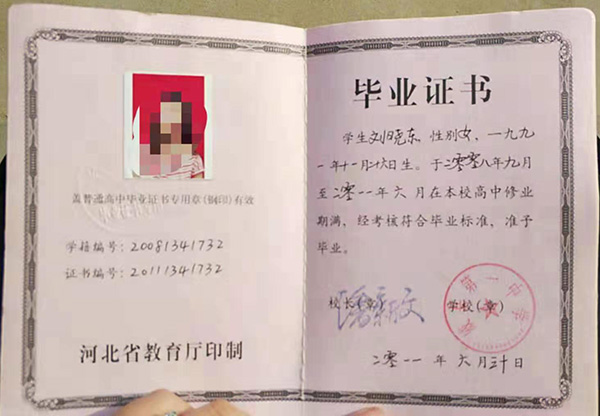 盖普通高中毕业证书专用章(钢印)有效
学籍编号: 20081341732
证书编号: 20111341732
河北省教育厅印制
毕业证书
学生刘晓东, 性别女, 一九九
一年十一月廿六日生。于二〇〇八年九月
至二〇一一年六月在本校高中修业
期满, 经考核符合毕业标准, 准予
毕业。
校长(章)
学校(章)
第一中学
二〇一一年六月三十日